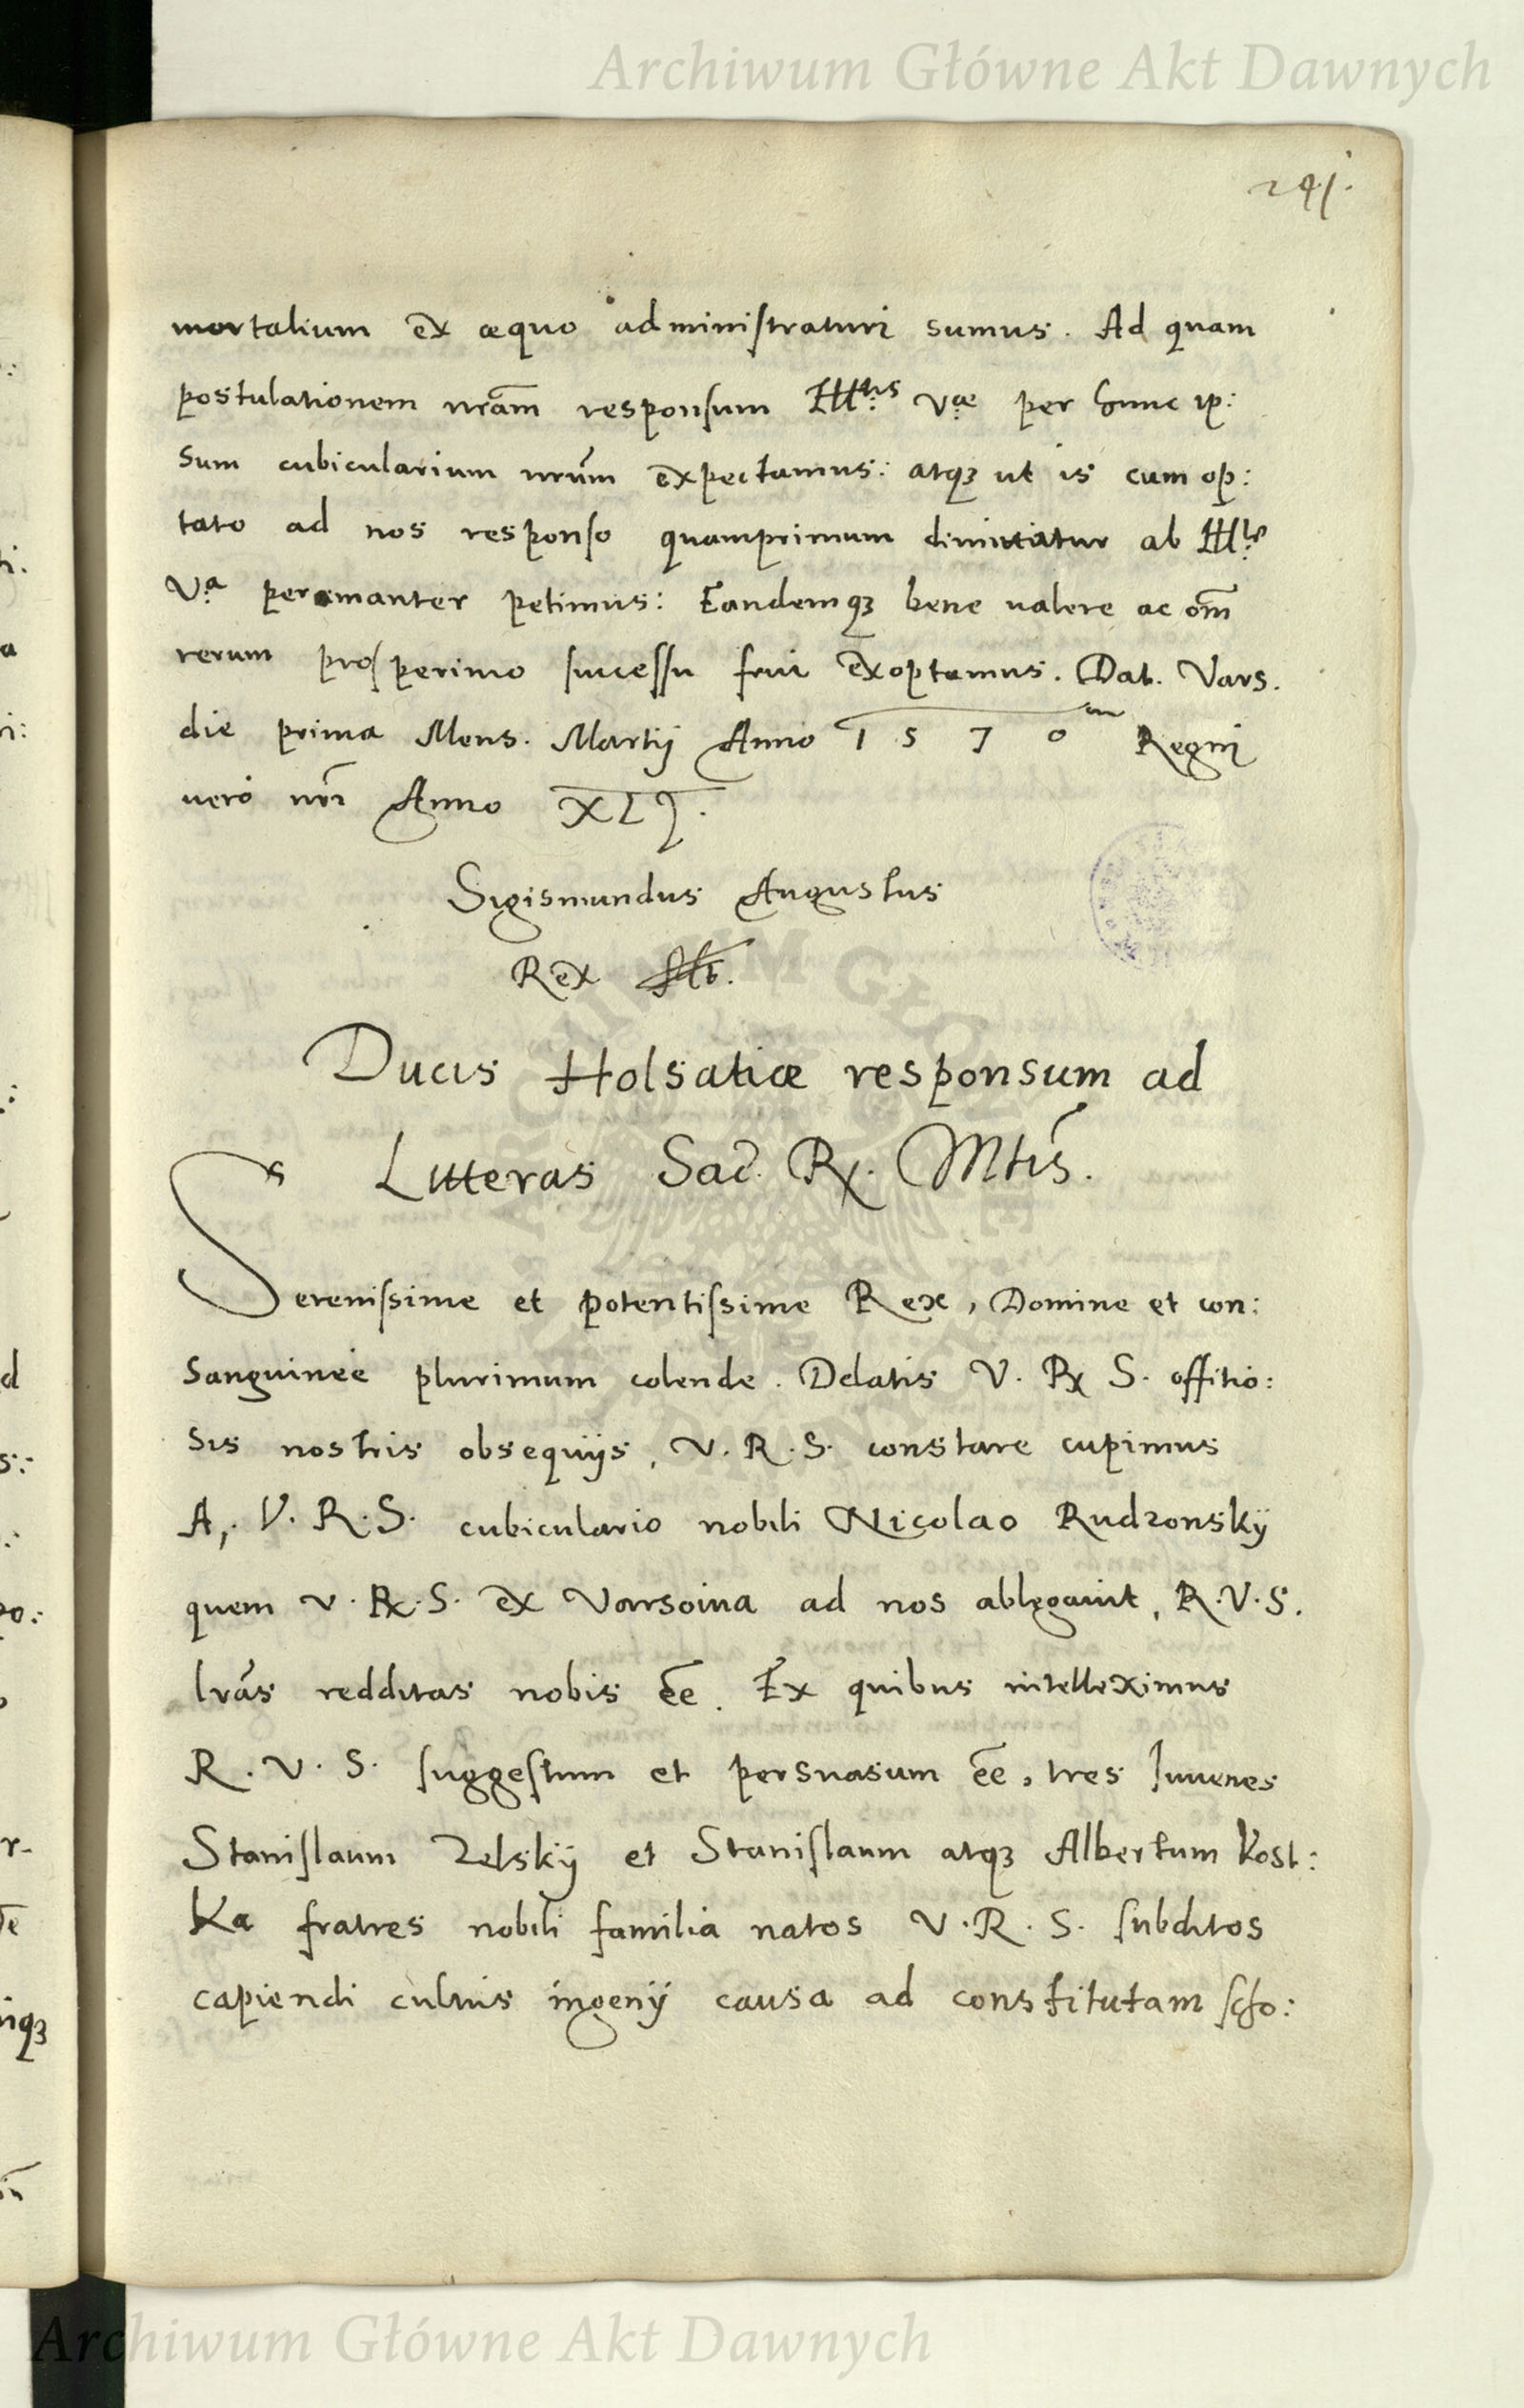 Archiwum Główne Akt Dawnych
291.
mortalium ex æquo administraturi sumus. Ad quam
postulationem nrām responsum Illtris Væ per hunc ip:
sum cubicularium nrūm expectamus: atqȝ ut is cum op:
tato ad nos responso quamprimum dimittatur ab Ille
Va peramanter petimus: Eandemqȝ bene valere ac om̄
rerum prosperimo successu frui exoptamus. Dat. Vars.
die prima Mens. Martij Anno 1570 Regni
vero nrī Anno XLJ.
Sigismundus Augustus
Rex
Ducis Holsatiæ responsum ad
Litteras Sac. Rx. Mtis.
Serenissime et potentissime Rex, Domine et con:
sanguinee plurimum colende. Delatis V. Rx S. offitio:
sis nostris obsequijs, V. R. S. constare cupimus
A, V. R. S. cubiculario nobili Nicolao Rudzonskÿ
quem V. Rx. S. ex Varsovia ad nos ablegauit, R. V. S.
lrās redditas nobis eē. Ex quibus intelleximus
R. V. S. suggestum et persuasum eē, tres Juuenes
Stanislaum Zelskÿ et Stanislaum atqȝ Albertum Kost:
Ka fratres nobili familia natos V. R. S. subditos
capiendi cultus ingenij causa ad constitutam scho:
Archiwum Główne Akt Dawnych